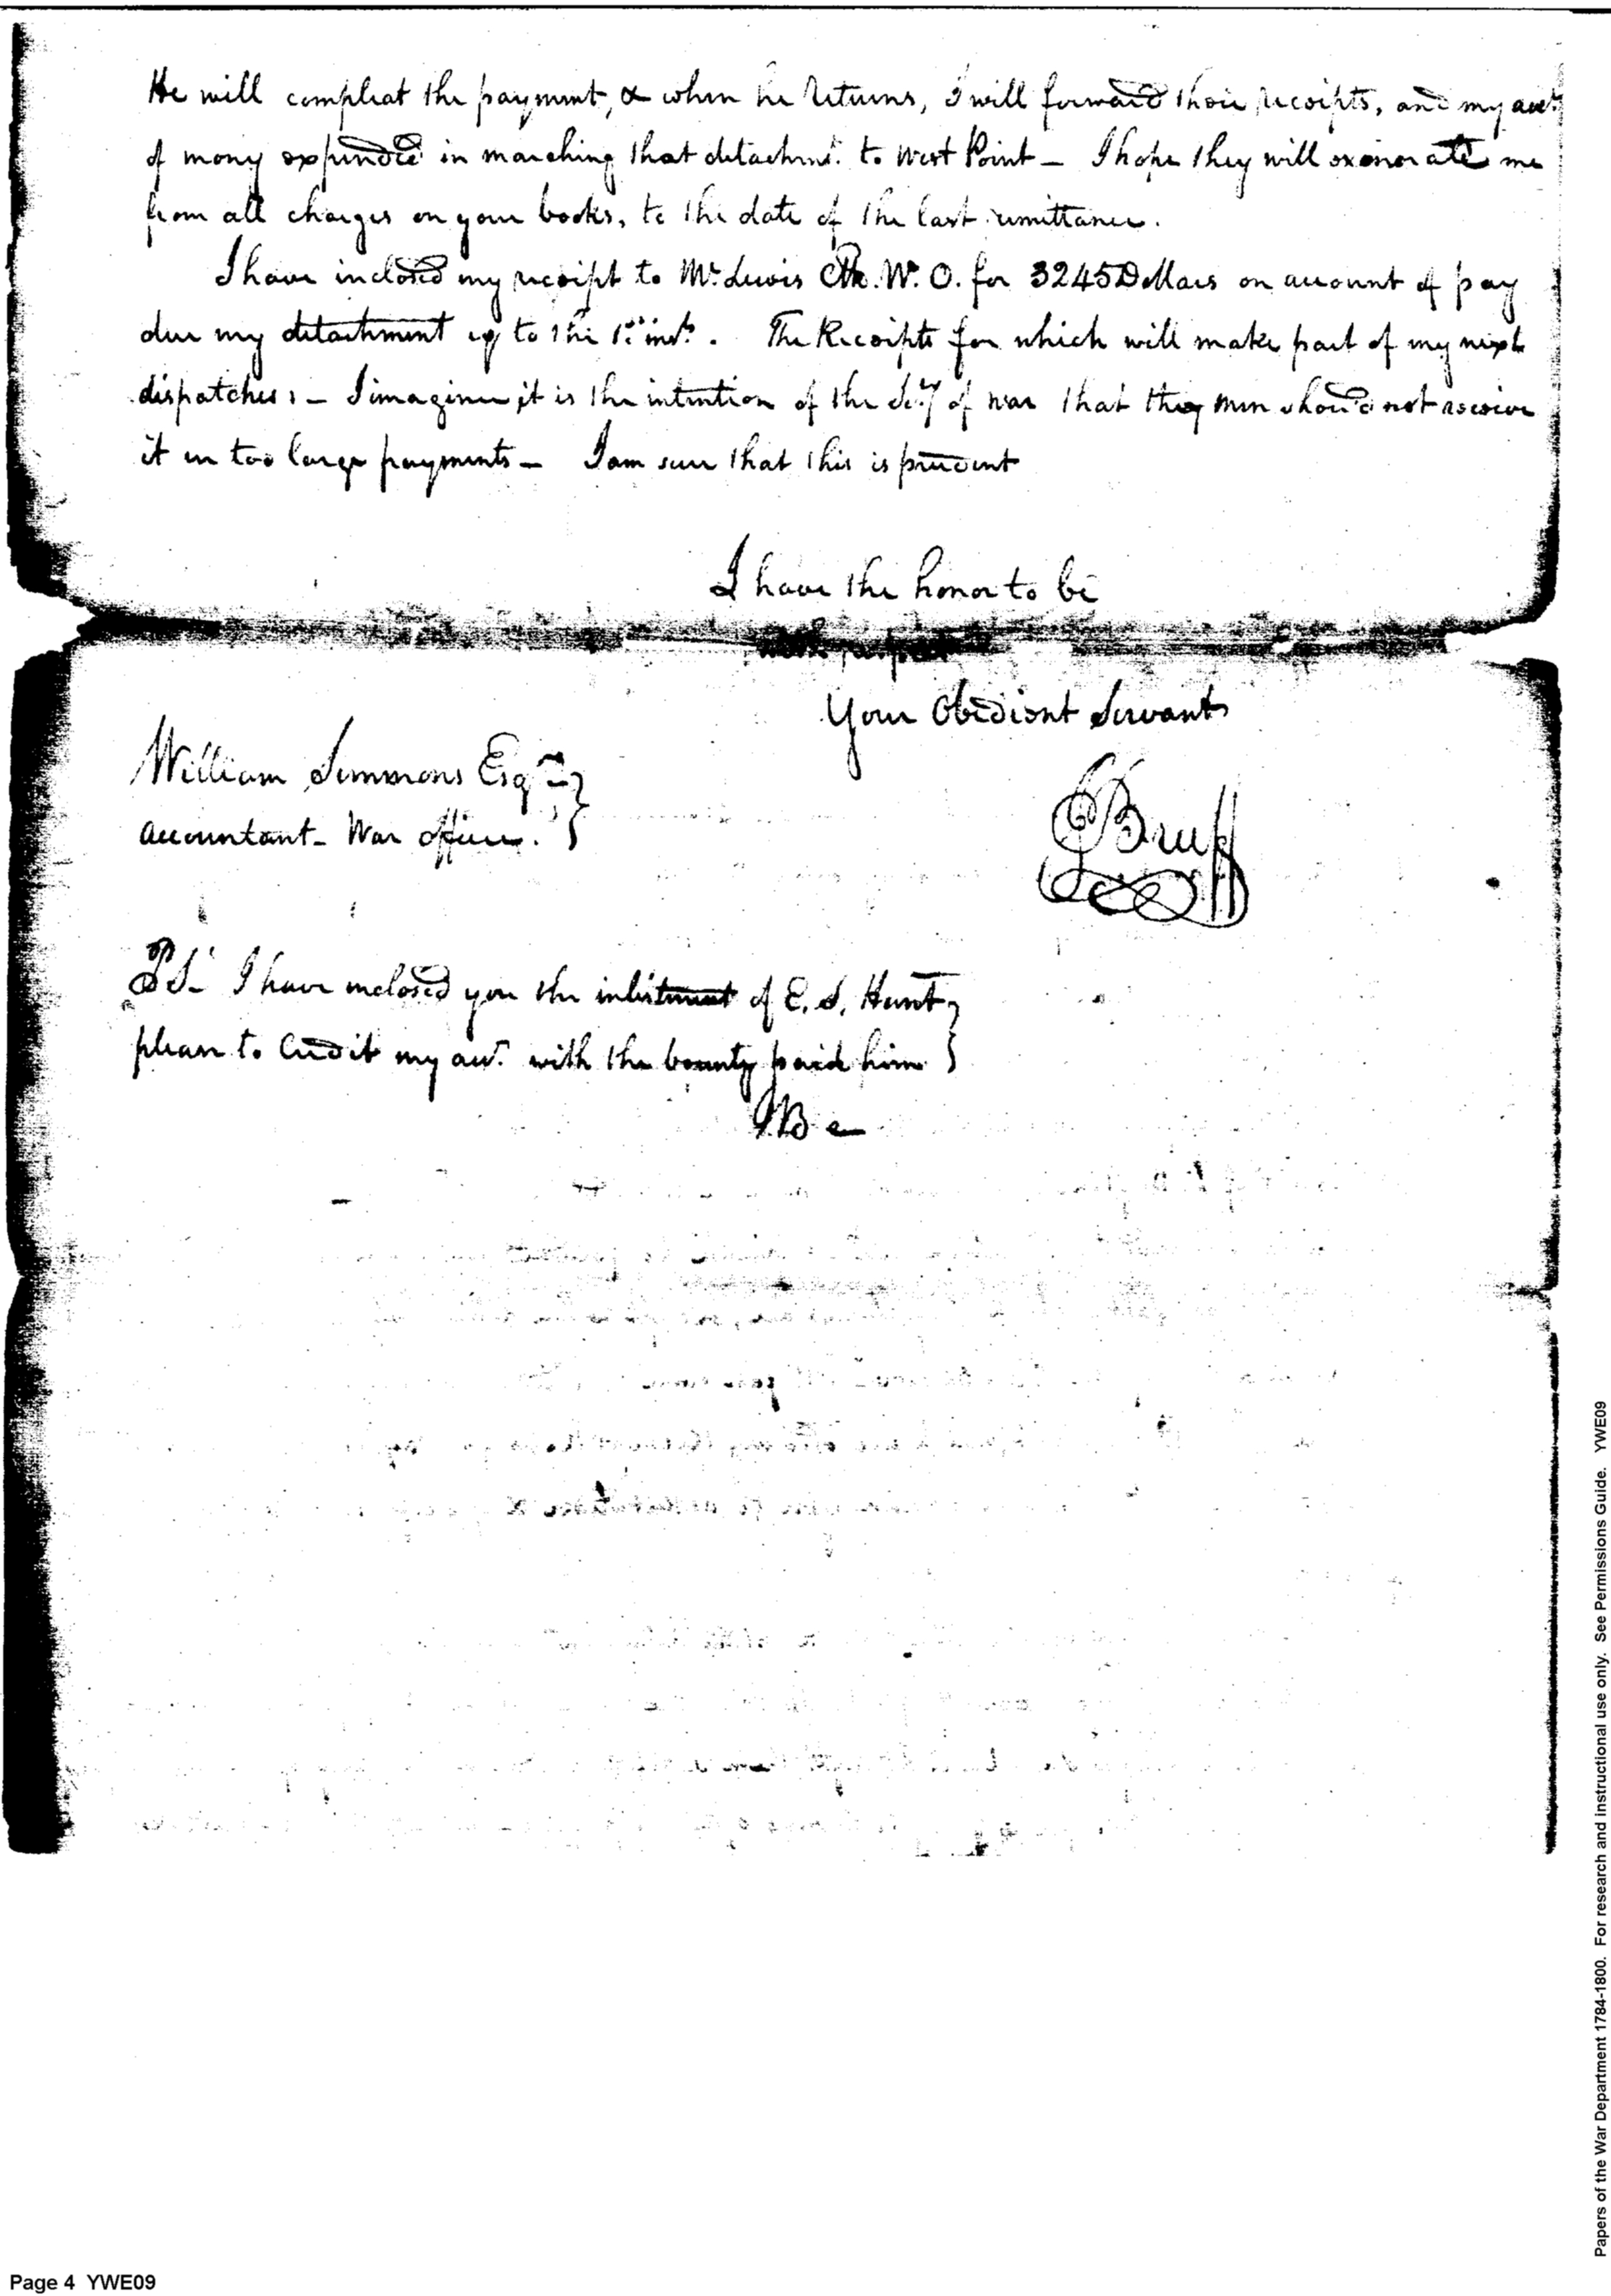 He will compleat the payment, & when he returns, I will forward their receipts, and my acct
of mony expended in marching that detachmt. to West Point – I hope they will exonerate me
from all charges on your books, to the date of the last remittance.
I have inclosed my receipt to Mr. Lewis Clk. W. O. for 3245 Dollars on account of pay
due my detachment up to the 1st inst. The Receipts for which will make part of my next
dispatches: – I imagine it is the intention of the Secy of War that the men should not receive
it in too large payments – I am sure that this is prudent
I have the honor to be
Your Obedient Servant
William Simmons Esqr.
Accountant – War office.
J Bruff
PS – I have inclosed you the inlistment of E. S. Hunt
please to Credit my acct. with the bounty paid him
JB
Page 4 YWE09
Papers of the War Department 1784-1800. For research and instructional use only. See Permissions Guide. YWE09